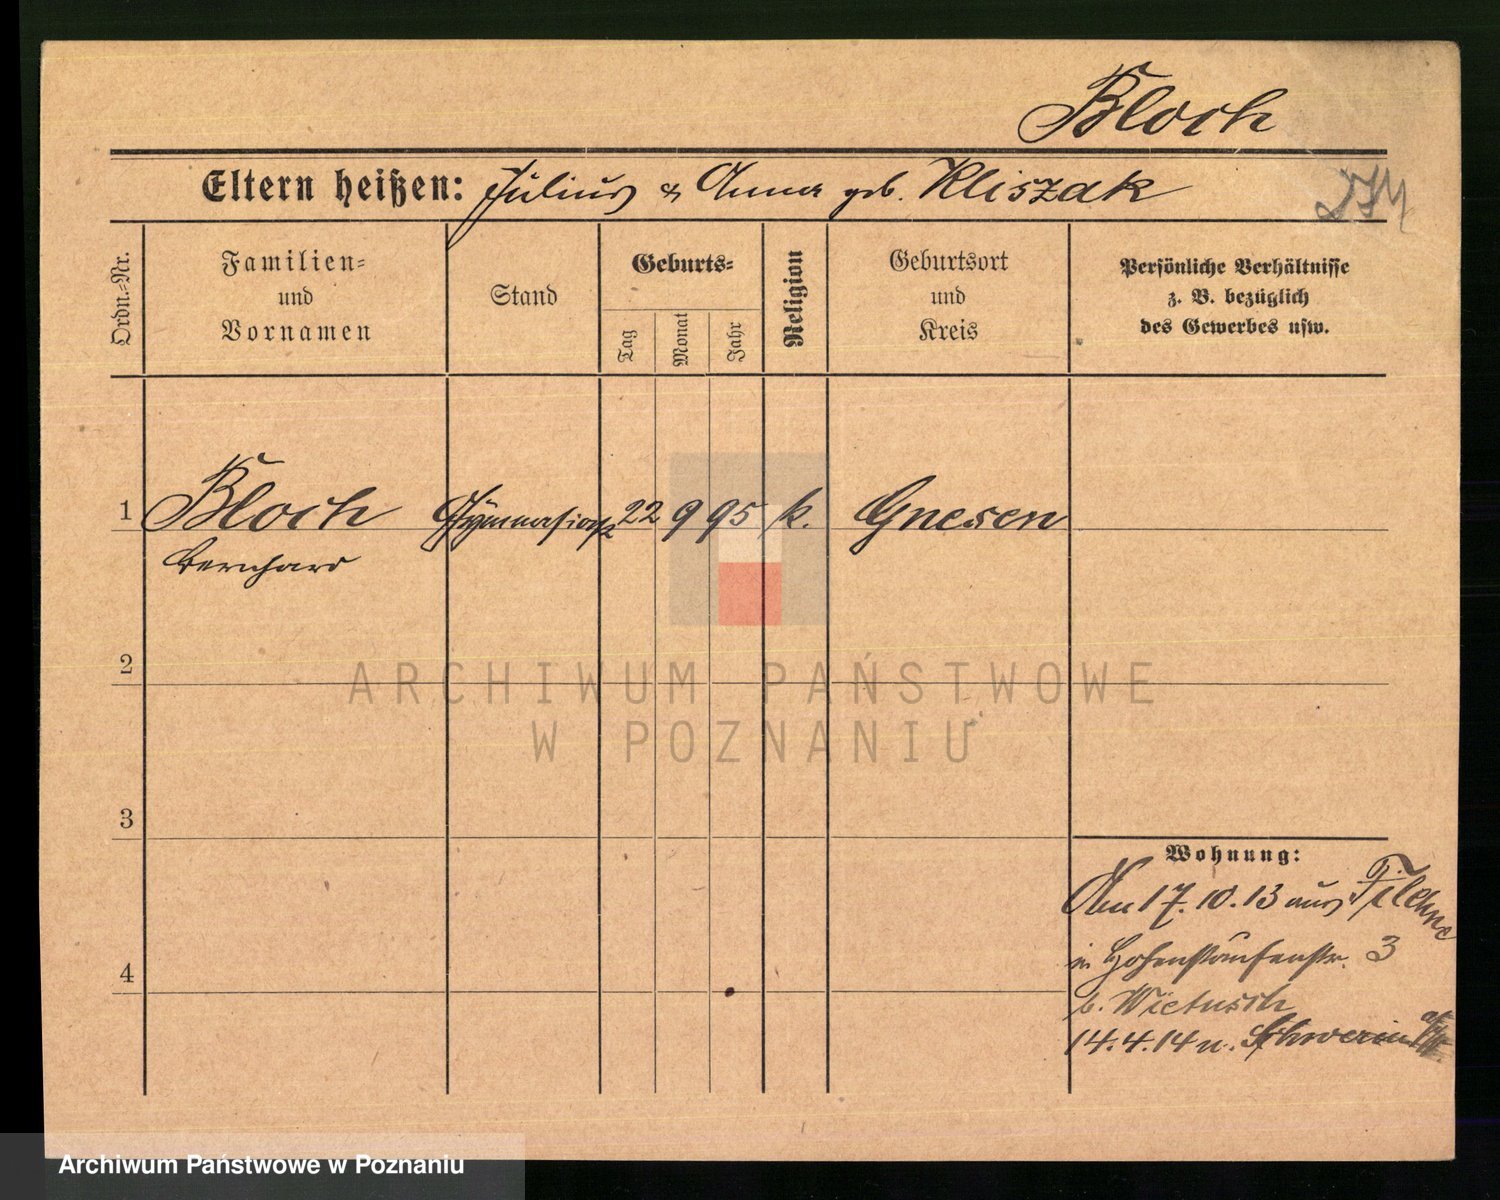 Bloch
Eltern heißen: Julius & Anna geb. Kliszak
Ordn.-Nr.
Familien-
und
Vornamen
Stand
Geburts-
Tag
Monat
Jahr
Religion
Geburtsort
und
Kreis
Persönliche Verhältnisse
z. B. bezüglich
des Gewerbes usw.
1 Bloch Gymnasiast 22 9 95 k. Gnesen
Bernhard
2
ARCHIWUM PAŃSTWOWE
W POZNANIU
3
Wohnung:
Am 17.10.13 aus Filehne
in Hohenstaufenstr. 3
b. Wietusch
4
14.4.14 n. Schwerin a/W.
Archiwum Państwowe w Poznaniu